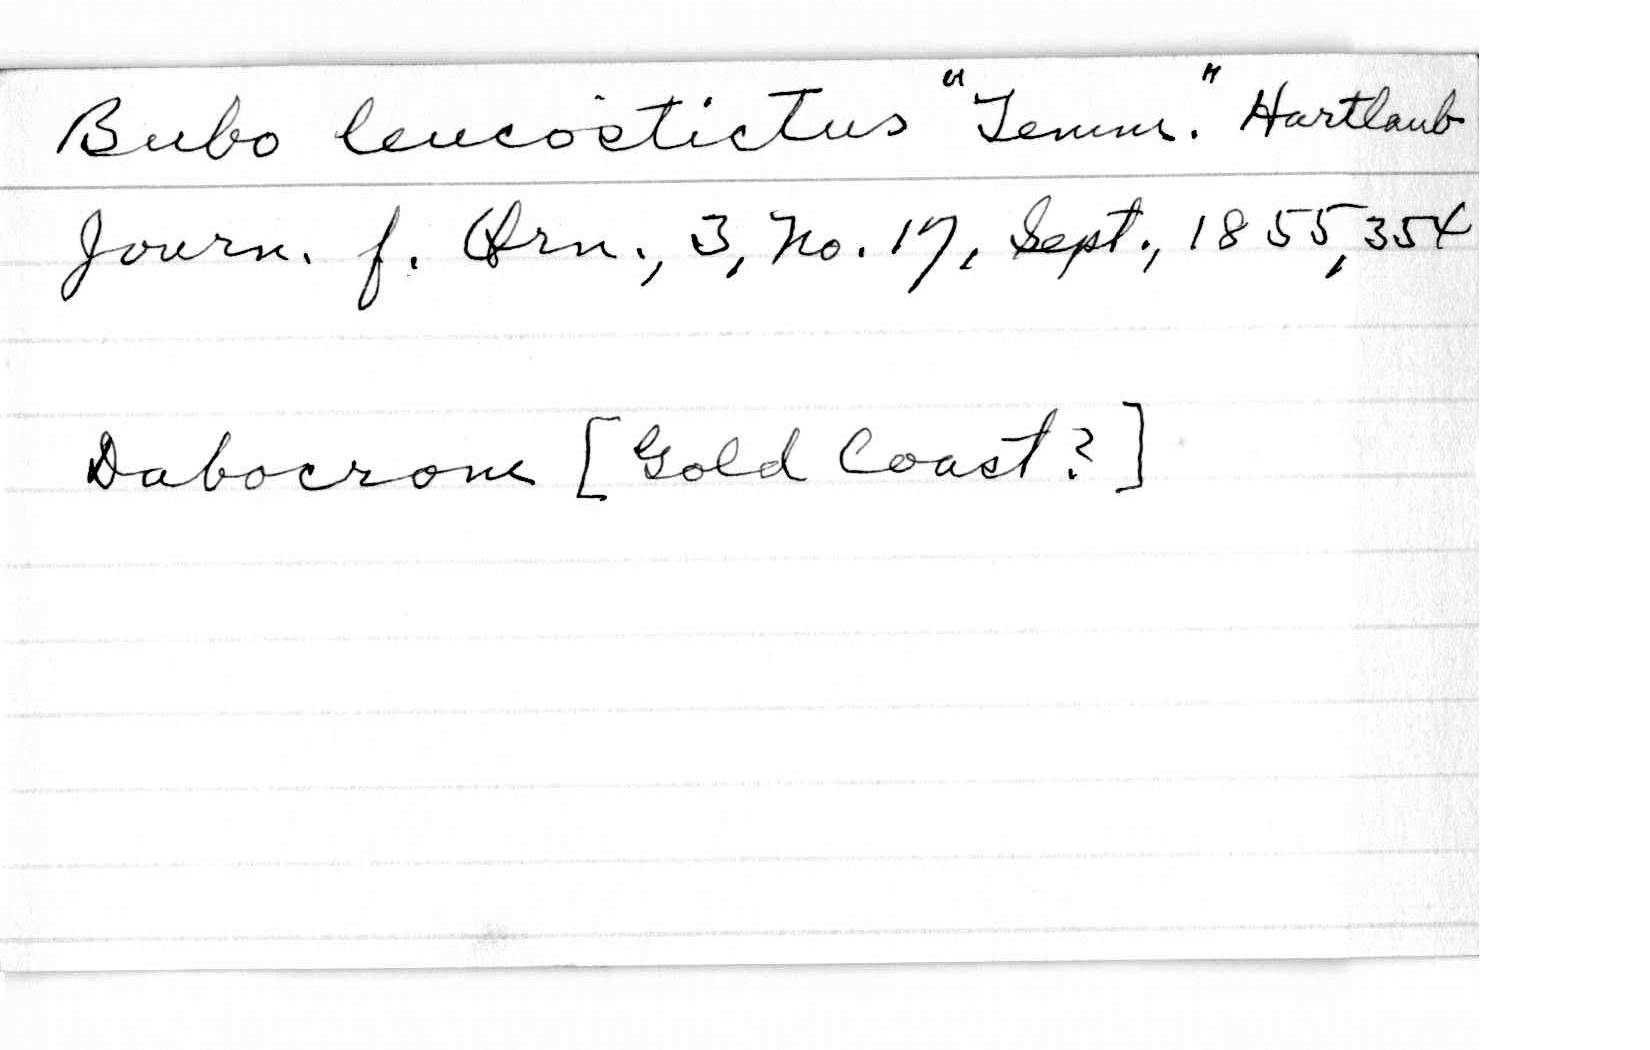 Bubo leucostictus "Temm." Hartlaub
Journ. f. Orn., 3, No. 17, Sept., 1855, 354
Dabocrom [Gold Coast?]